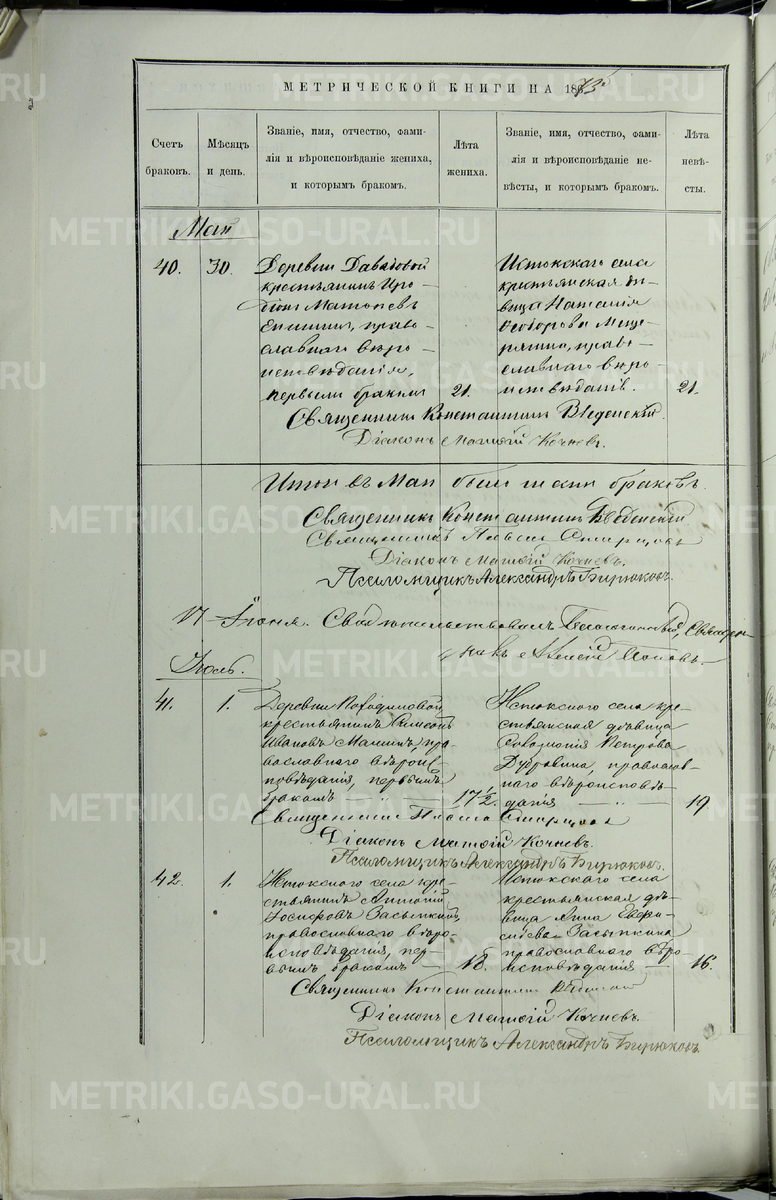 МЕТРИЧЕСКОЙ КНИГИ НА 1873
Счетъ браковъ.
Мѣсяцъ и день.
Званіе, имя, отчество, фами-
лія и вѣроисповѣданіе жениха,
и которымъ бракомъ.
Лѣта жениха.
Званіе, имя, отчество, фами-
лія и вѣроисповѣданіе не-
вѣсты, и которымъ бракомъ.
Лѣта невѣ-
сты.
Май
40. 30.
Деревни Давыдовой
крестьянинъ
православнаго вѣро-
исповѣданія,
первымъ бракомъ 21.
Истокскаго села
крестьянская дѣ-
вица Наталія
Ѳеодорова Меще-
рягина, право-
славнаго вѣро-
исповѣданія. 21.
Священникъ Константинъ Введенскій.
Діаконъ Матѳій Кочневъ.
Итого въ Маѣ браковъ.
Священникъ Константинъ Введенскій
Священникъ Павелъ
Діаконъ Матѳій Кочневъ.
Псаломщикъ Александръ Бирюковъ.
17 Іюня. Свидѣтельствовалъ Благочинный, Священ-
никъ Алексій Поповъ.
Іюль.
41. 1.
Деревни
крестьянинъ Симеонъ
Ивановъ пра-
вославнаго вѣроис-
повѣданія, первымъ
бракомъ 17½.
Истокскаго села кре-
стьянская дѣвица
Соломонія Петрова
Дубровина, православ-
наго вѣроисповѣ-
данія 19
Священникъ Павелъ
Діаконъ Матѳій Кочневъ.
Псаломщикъ Александръ Бирюковъ.
42. 1.
Истокскаго села кре-
стьянинъ Антоній
Іосифовъ Засыпкинъ,
православнаго вѣро-
исповѣданія, пер-
вымъ бракомъ 18.
Истокскаго села
крестьянская дѣ-
вица Анна
Засыпкина
православнаго вѣро-
исповѣданія 16.
Священникъ Константинъ Введенскій
Діаконъ Матѳій Кочневъ.
Псаломщикъ Александръ Бирюковъ.
METRIKI.GASO-URAL.RU